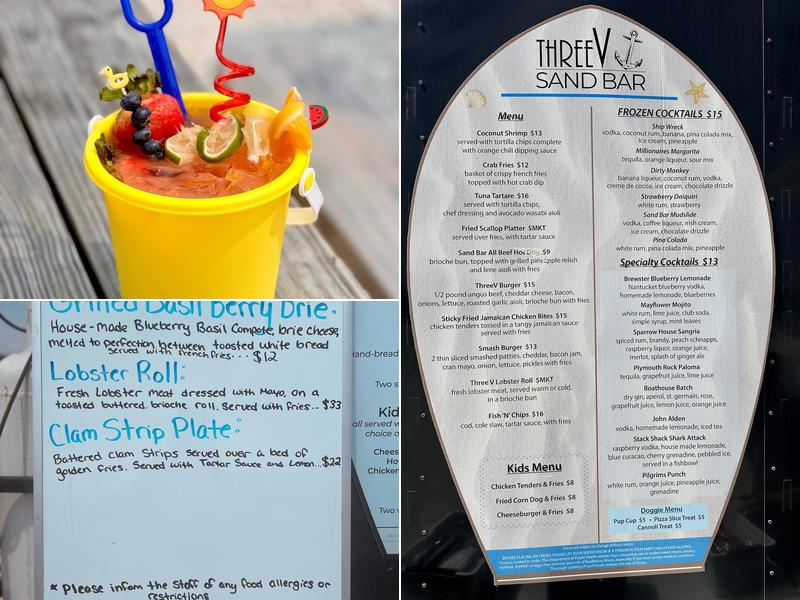 Grilled Basil Berry Brie:
House-made Blueberry Basil Compote, brie cheese,
melted to perfection between toasted white bread
served with french fries... $12
Lobster Roll:
Fresh Lobster meat dressed with Mayo, on a
toasted buttered brioche roll. Served with fries... $33
Clam Strip Plate:
Battered Clam Strips served over a bed of
golden fries. Served with Tartar Sauce and Lemon...$22
* Please inform the staff of any food allergies or
restrictions
Hand-bread
Two s
Kid
all served w
choice o
Chees
Ho
Chicken
Two v
THREEV
SAND BAR
Menu
Coconut Shrimp $13
served with tortilla chips complete
with orange chili dipping sauce
Crab Fries $12
basket of crispy french fries
topped with hot crab dip
Tuna Tartare $16
served with tortilla chips,
chef dressing and avocado wasabi aioli
Fried Scallop Platter $MKT
served over fries, with tartar sauce
Sand Bar All Beef Hot Dog $9
brioche bun, topped with grilled pineapple relish
and lime aioli with fries
ThreeV Burger $15
1/2 pound angus beef, cheddar cheese, bacon,
onions, lettuce, roasted garlic aioli, brioche bun with fries
Sticky Fried Jamaican Chicken Bites $15
chicken tenders tossed in a tangy jamaican sauce
served with fries
Smash Burger $13
2 thin sliced smashed patties, cheddar, bacon jam,
cran mayo, onion, lettuce, pickles with fries
Three V Lobster Roll $MKT
fresh lobster meat, served warm or cold,
in a brioche bun
Fish 'N' Chips $16
cod, cole slaw, tartar sauce, with fries
Kids Menu
Chicken Tenders & Fries $8
Fried Corn Dog & Fries $8
Cheeseburger & Fries $8
FROZEN COCKTAILS $15
Ship Wreck
vodka, coconut rum, banana, pina colada mix,
ice cream, pineapple
Millionaires Margarita
tequila, orange liqueur, sour mix
Dirty Monkey
banana liqueur, coconut rum, vodka,
creme de cocoa, ice cream, chocolate drizzle
Strawberry Daiquiri
white rum, strawberry
Sand Bar Mudslide
vodka, coffee liqueur, irish cream,
ice cream, chocolate drizzle
Pina Colada
white rum, pina colada mix, pineapple
Specialty Cocktails $13
Brewster Blueberry Lemonade
Nantucket blueberry vodka,
homemade lemonade, blueberries
Mayflower Mojito
white rum, lime juice, club soda,
simple syrup, mint leaves
Sparrow House Sangria
spiced rum, brandy, peach schnapps,
raspberry liquor, orange juice,
merlot, splash of ginger ale
Plymouth Rock Paloma
tequila, grapefruit juice, lime juice
Boathouse Batch
dry gin, aperol, st. germain, rose,
grapefruit juice, lemon juice, orange juice
John Alden
vodka, homemade lemonade, iced tea
Stack Shack Shark Attack
raspberry vodka, house made lemonade,
blue curacao, cherry grenadine, pebbled ice,
served in a fishbowl
Pilgrims Punch
white rum, orange juice, pineapple juice,
grenadine
Doggie Menu
Pup Cup $5 • Pizza Slice Treat $5
Cannoli Treat $5
Prices are subject to change without notice.
BEFORE PLACING AN ORDER, PLEASE LET YOUR SERVER KNOW IF A PERSON IN YOUR PARTY HAS A FOOD ALLERGY.